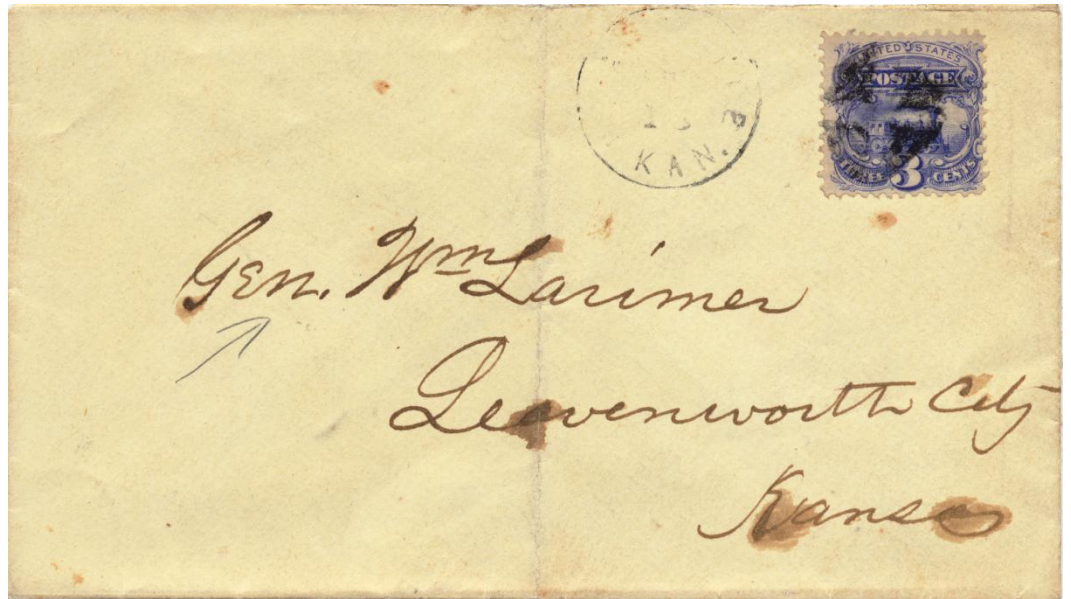 KAN.
UNITED STATES
POSTAGE
THREE 3 CENTS
Gen. Wm Larimer
Leavenworth City
Kansas